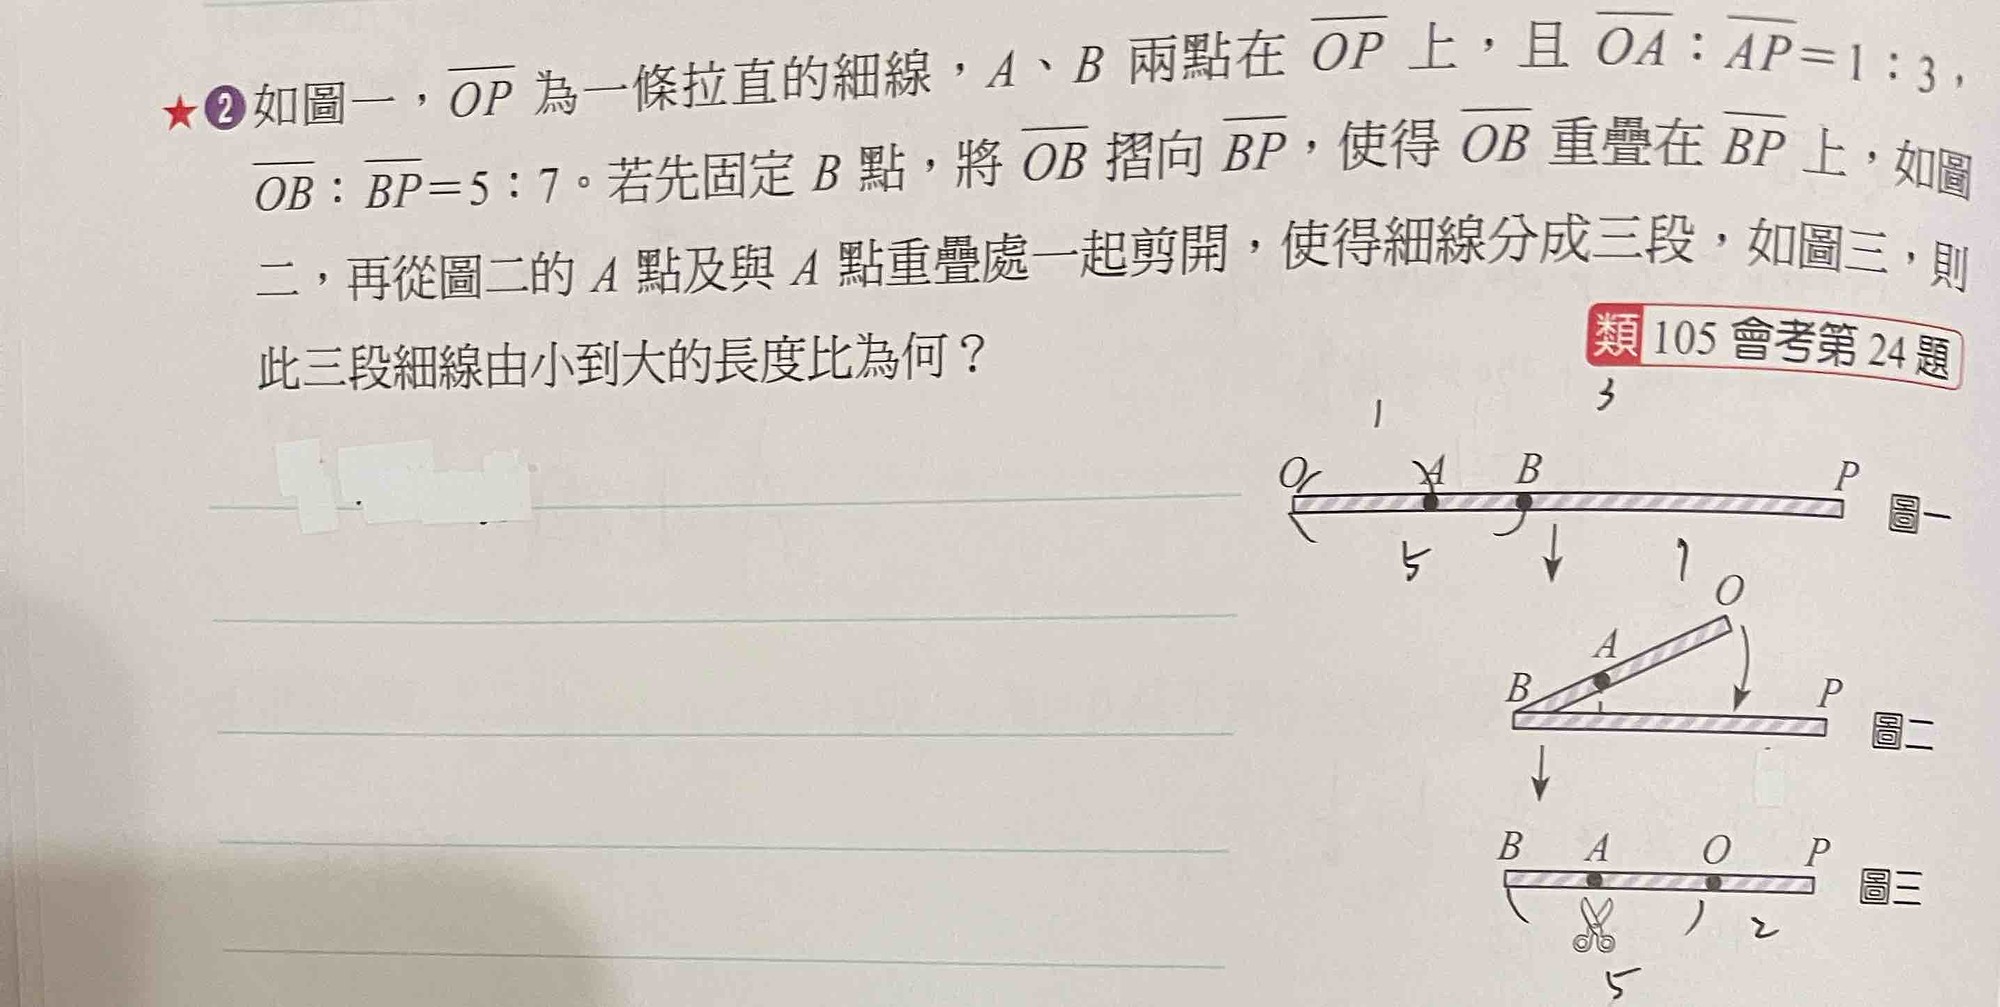 ★❷如圖一，OP 為一條拉直的細線，A、B 兩點在 OP 上，且 OA：AP=1：3，
OB：BP=5：7。若先固定 B 點，將 OB 摺向 BP，使得 OB 重疊在 BP 上，如圖
二，再從圖二的 A 點及與 A 點重疊處一起剪開，使得細線分成三段，如圖三，則
此三段細線由小到大的長度比為何？
類 105 會考第 24 題
1 3
O A B P 圖一
5 7
O
A
B P 圖二
B A O P 圖三
2
5